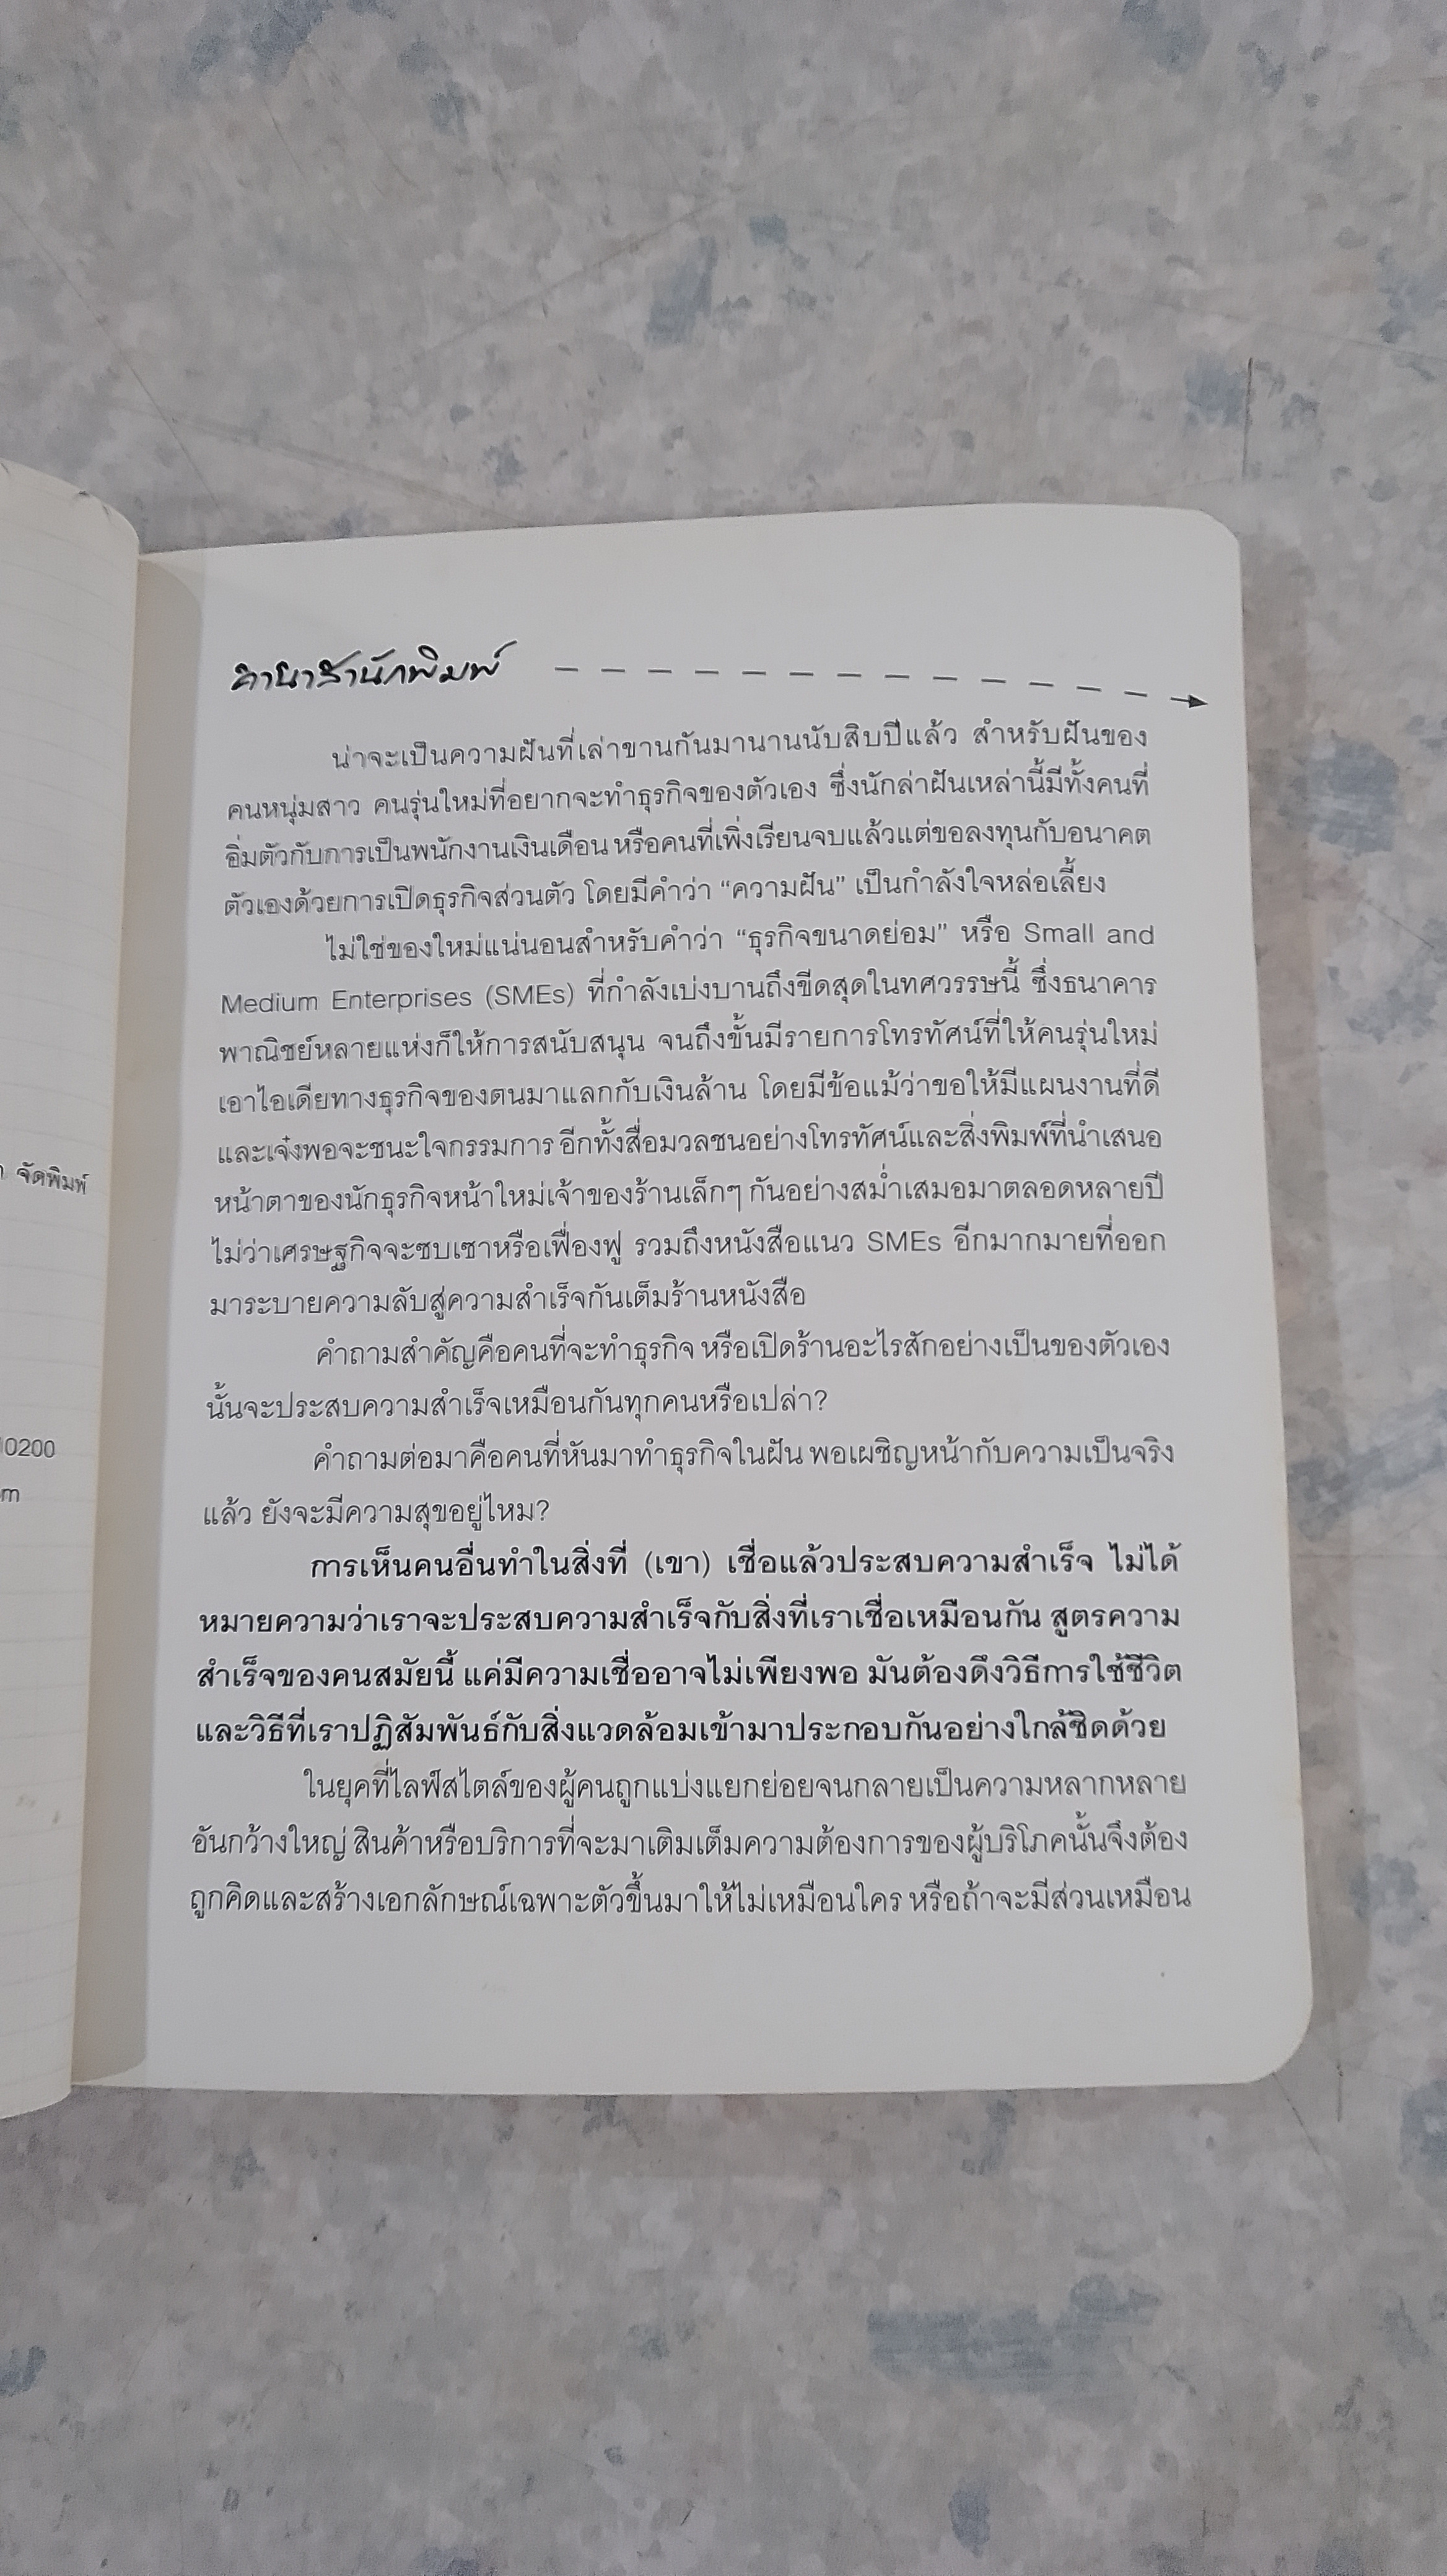 จัดพิมพ์
0200
m
คำนำสำนักพิมพ์
น่าจะเป็นความฝันที่เล่าขานกันมานานนับสิบปีแล้ว สำหรับฝันของ
คนหนุ่มสาว คนรุ่นใหม่ที่อยากจะทำธุรกิจของตัวเอง ซึ่งนักล่าฝันเหล่านี้มีทั้งคนที่
อิ่มตัวกับการเป็นพนักงานเงินเดือน หรือคนที่เพิ่งเรียนจบแล้วแต่ขอลงทุนกับอนาคต
ตัวเองด้วยการเปิดธุรกิจส่วนตัว โดยมีคำว่า “ความฝัน” เป็นกำลังใจหล่อเลี้ยง
ไม่ใช่ของใหม่แน่นอนสำหรับคำว่า “ธุรกิจขนาดย่อม” หรือ Small and
Medium Enterprises (SMEs) ที่กำลังเบ่งบานถึงขีดสุดในทศวรรษนี้ ซึ่งธนาคาร
พาณิชย์หลายแห่งก็ให้การสนับสนุน จนถึงขั้นมีรายการโทรทัศน์ที่ให้คนรุ่นใหม่
เอาไอเดียทางธุรกิจของตนมาแลกกับเงินล้าน โดยมีข้อแม้ว่าขอให้มีแผนงานที่ดี
และเจ๋งพอจะชนะใจกรรมการ อีกทั้งสื่อมวลชนอย่างโทรทัศน์และสิ่งพิมพ์ที่นำเสนอ
หน้าตาของนักธุรกิจหน้าใหม่เจ้าของร้านเล็กๆ กันอย่างสม่ำเสมอมาตลอดหลายปี
ไม่ว่าเศรษฐกิจจะซบเซาหรือเฟื่องฟู รวมถึงหนังสือแนว SMEs อีกมากมายที่ออก
มาระบายความลับสู่ความสำเร็จกันเต็มร้านหนังสือ
คำถามสำคัญคือคนที่จะทำธุรกิจ หรือเปิดร้านอะไรสักอย่างเป็นของตัวเอง
นั้นจะประสบความสำเร็จเหมือนกันทุกคนหรือเปล่า?
คำถามต่อมาคือคนที่หันมาทำธุรกิจในฝัน พอเผชิญหน้ากับความเป็นจริง
แล้ว ยังจะมีความสุขอยู่ไหม?
การเห็นคนอื่นทำในสิ่งที่ (เขา) เชื่อแล้วประสบความสำเร็จ ไม่ได้
หมายความว่าเราจะประสบความสำเร็จกับสิ่งที่เราเชื่อเหมือนกัน สูตรความ
สำเร็จของคนสมัยนี้ แค่มีความเชื่ออาจไม่เพียงพอ มันต้องดึงวิธีการใช้ชีวิต
และวิธีที่เราปฏิสัมพันธ์กับสิ่งแวดล้อมเข้ามาประกอบกันอย่างใกล้ชิดด้วย
ในยุคที่ไลฟ์สไตล์ของผู้คนถูกแบ่งแยกย่อยจนกลายเป็นความหลากหลาย
อันกว้างใหญ่ สินค้าหรือบริการที่จะมาเติมเต็มความต้องการของผู้บริโภคนั้นจึงต้อง
ถูกคิดและสร้างเอกลักษณ์เฉพาะตัวขึ้นมาให้ไม่เหมือนใคร หรือถ้าจะมีส่วนเหมือน